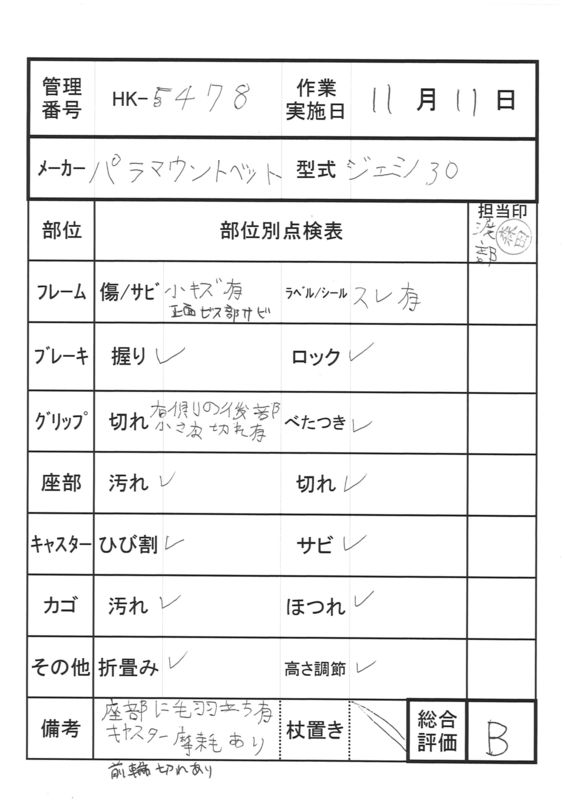 管理番号 HK-5478 作業実施日 11月11日
メーカー パラマウントベット 型式 ジェミノ30
部位 部位別点検表 担当印
渡部
フレーム 傷/サビ 小キズ有 ラベル/シール スレ有
正面ビス部サビ
ブレーキ 握り ✓ ロック ✓
グリップ 切れ 右側りの後部 べたつき ✓
小さな切れ有
座部 汚れ ✓ 切れ ✓
キャスター ひび割 ✓ サビ ✓
カゴ 汚れ ✓ ほつれ ✓
その他 折畳み ✓ 高さ調節 ✓
備考 座部に毛羽立ち有 杖置き 総合評価 B
キャスター摩耗あり
前輪切れあり